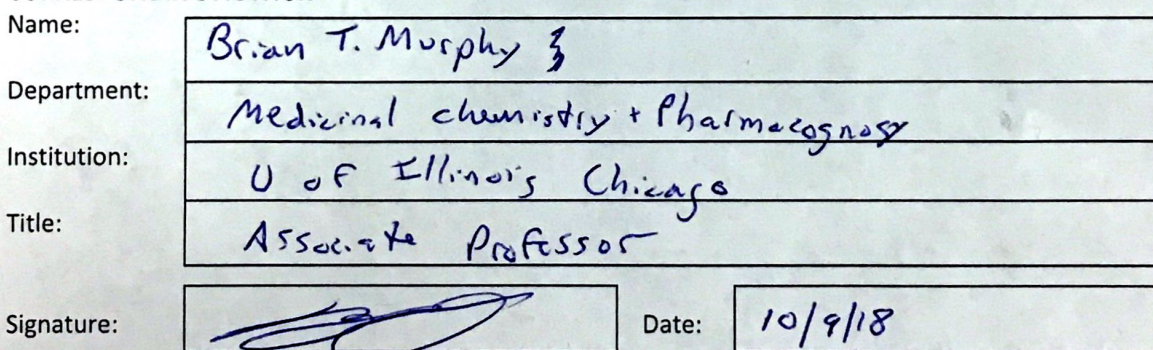 Name: Brian T. Murphy
Department: Medicinal chemistry + Pharmacognosy
Institution: U of Illinois Chicago
Title: Associate Professor
Signature: Date: 10/9/18